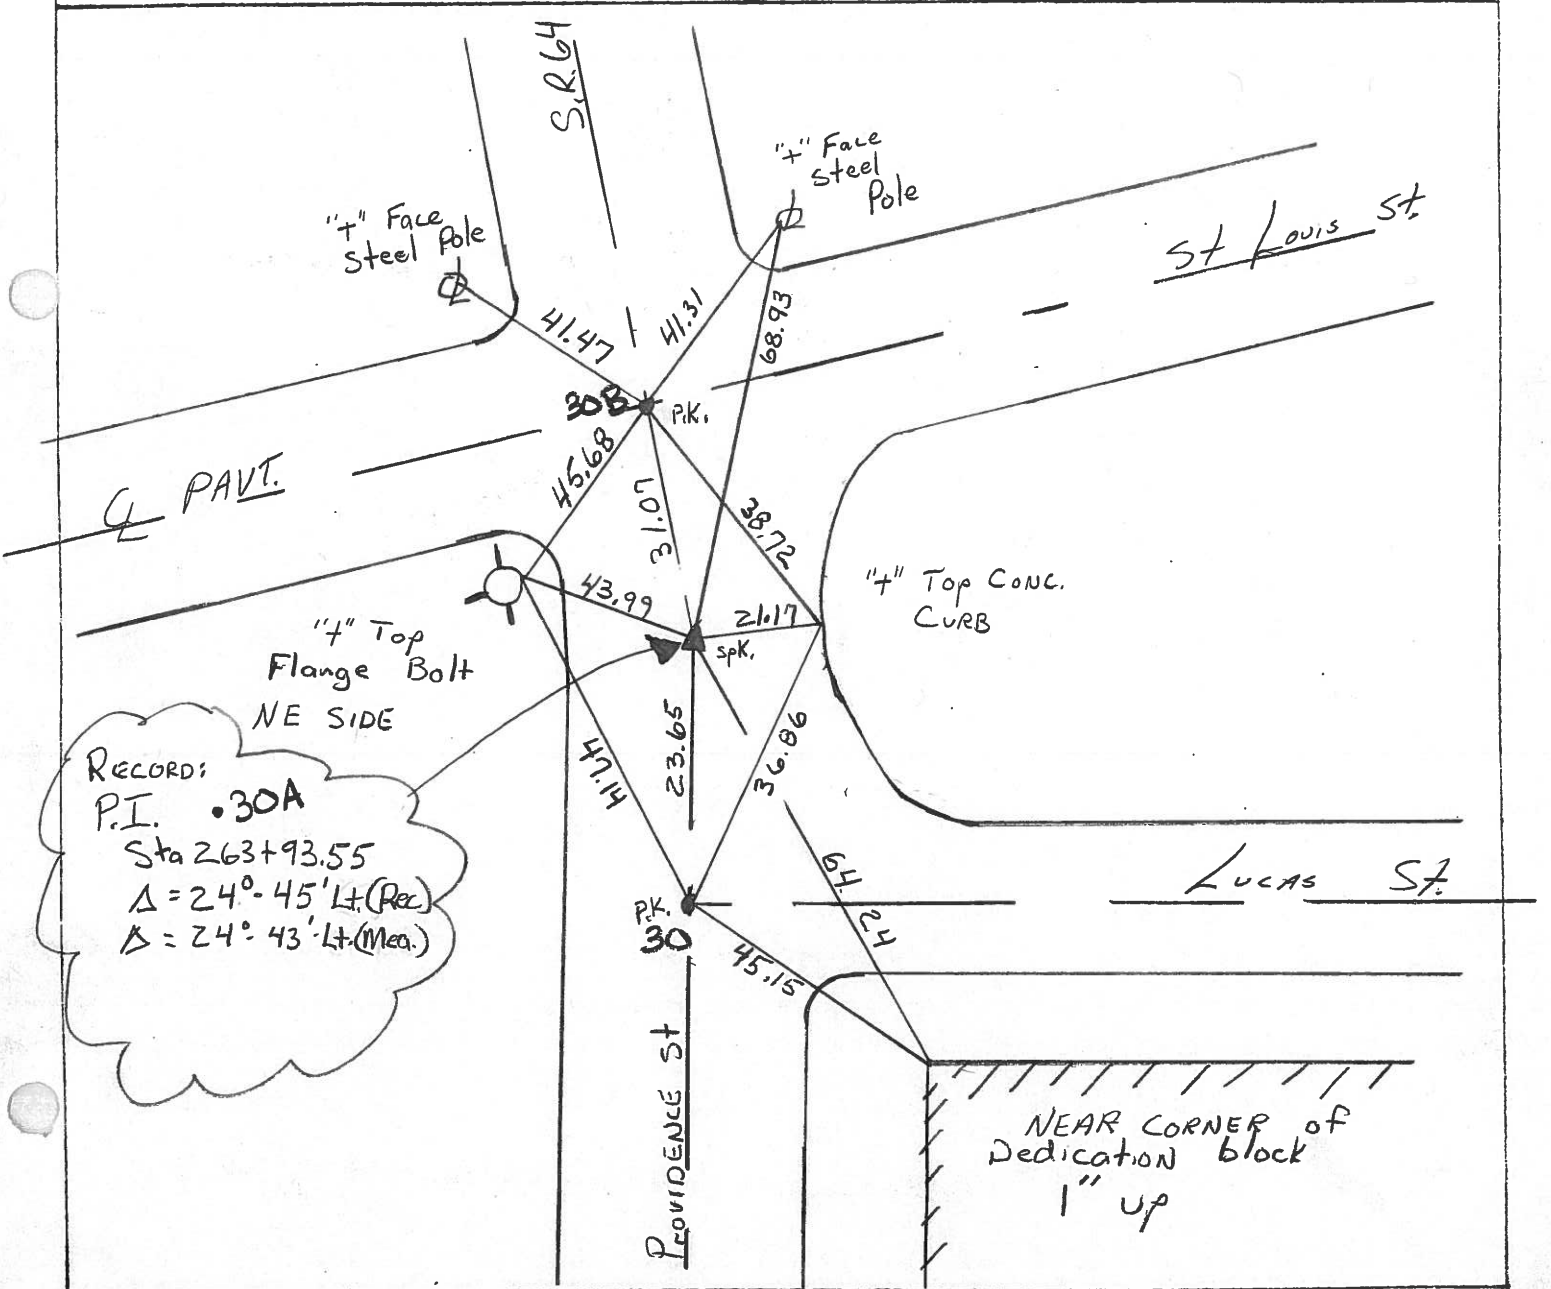 S.R. 64
"+" Face
Steel
Pole
"+" Face
Steel Pole
St Louis St.
41.47
41.31
68.93
30B
P.K.
℄ PAVT.
45.68
31.07
38.72
"+" Top CONC.
CURB
43.99
21.17
spk.
"+" Top
Flange Bolt
NE SIDE
23.65
36.86
47.14
RECORD:
P.I. .30A
Sta 263+93.55
Δ = 24°-45' Lt.(Rec)
Δ = 24°-43' Lt.(Mea.)
64.24
LUCAS St.
P.K.
30
45.15
PROVIDENCE St
NEAR CORNER of
Dedication block
1" up